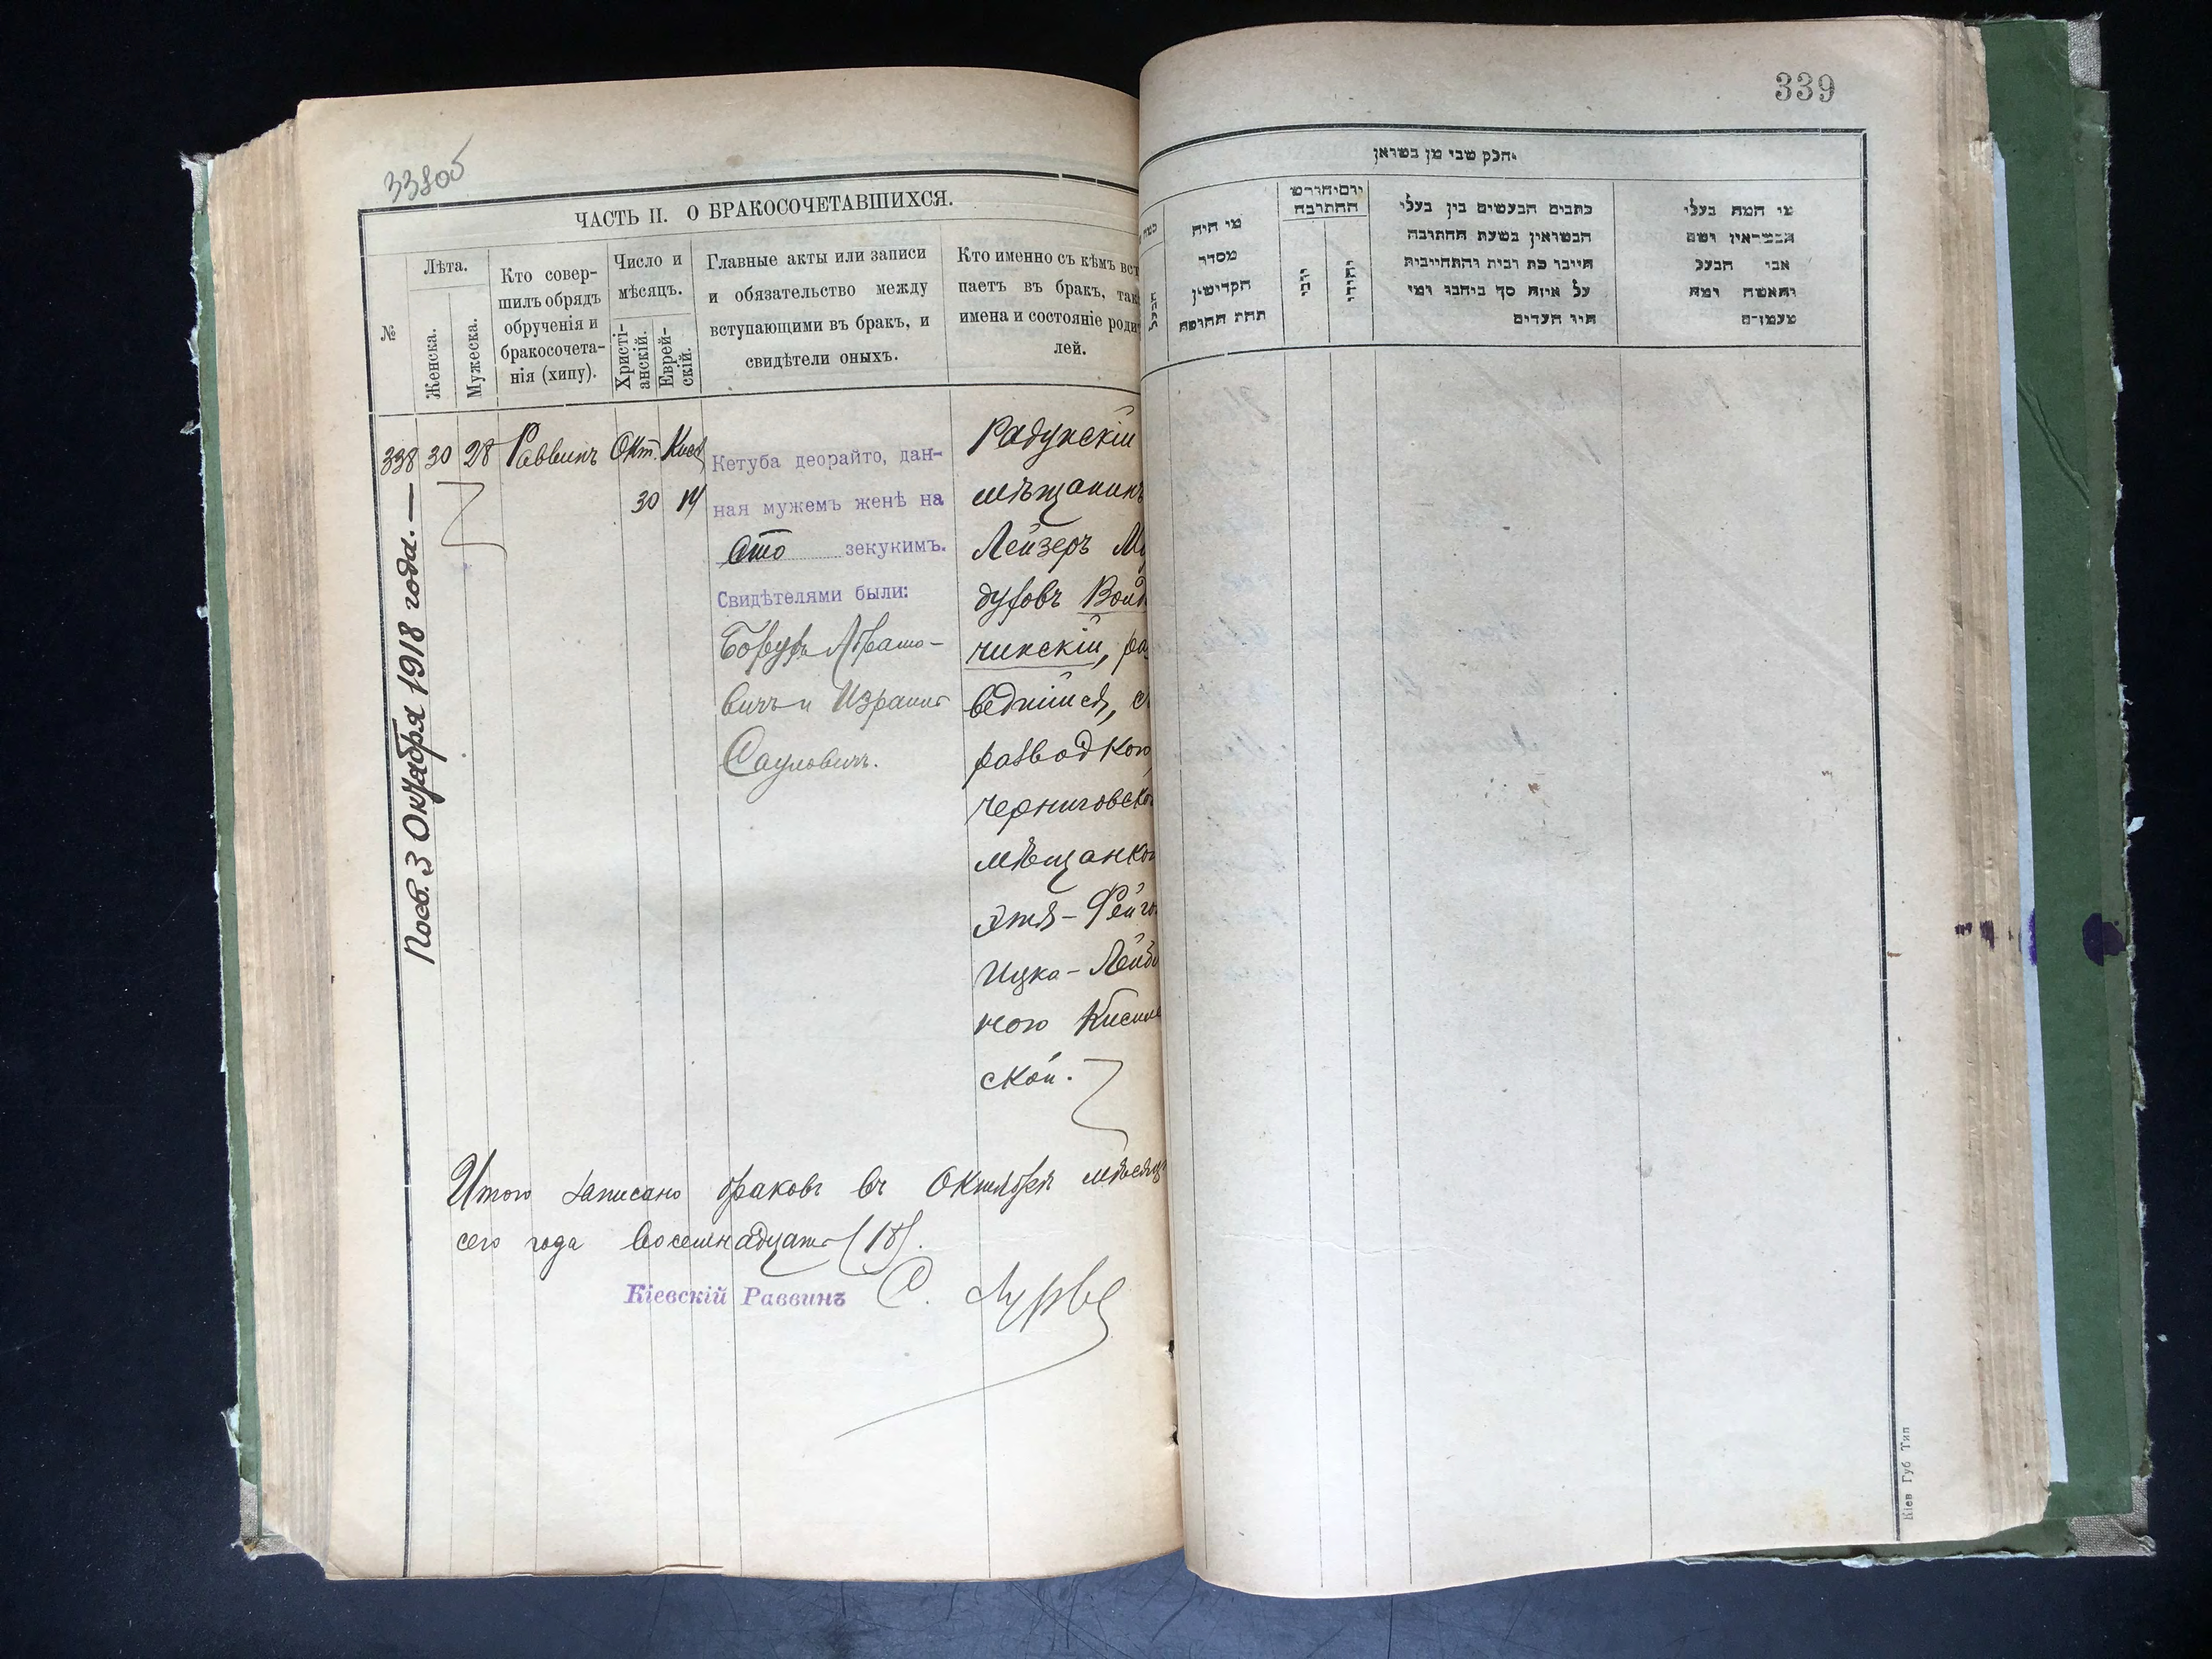 338об
ЧАСТЬ II. О БРАКОСОЧЕТАВШИХСЯ.
№
Лѣта.
Женска.
Мужеска.
Кто совер-
шилъ обрядъ
обрученія и
бракосочета-
нія (хипу).
Число и
мѣсяцъ.
Христі-
анскій.
Еврей-
скій.
Главные акты или записи
и обязательство между
вступающими въ бракъ, и
свидѣтели оныхъ.
Кто именно съ кѣмъ вст
паетъ въ бракъ, так
имена и состояніе роди
лей.
338 30 28 Раввинъ Окт.
30 14
Кетуба деорайто, дан-
ная мужемъ женѣ на
сто зекукимъ.
Свидѣтелями были:
Борухъ Абрамо-
вичъ и Израиль
Сауловичъ.
Радунскій
мѣщанинъ
Лейзеръ
духовъ
чинскій, раз
ведшійся, с
разводкою
черниговско
мѣщанкой
Этя-Фейго
Ицка-Лейбо
ною
ской.
Посв. 3 Октября 1918 года. —
Итого записано браковъ въ Октябрѣ мѣсяцѣ
сего года восемнадцать (18).
Кіевскій Раввинъ С. Лурье
339
חלק שני מן נשואין
הבעל
מי היה
מסדר
הקדושין
תחת החופה
יום וחודש
החתונה
נוצרי
יהודי
כתבים הנעשים בין בעלי
הנשואין בשעת החתונה
חייבו כת ובית והתחייבות
על איזה סך ביחבו ומי
היו העדים
מי המה בעלי
הנשואין ושם
אבי הבעל
והאשה ומה
מעמדם
Кіев Губ Тип